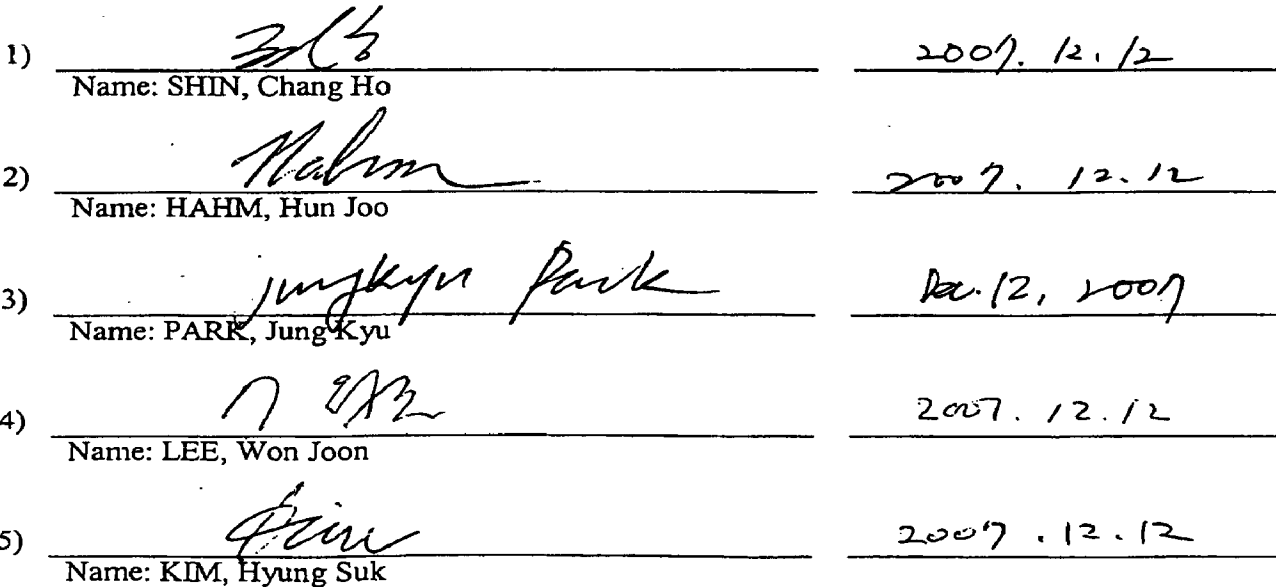 1) 2007. 12. 12
Name: SHIN, Chang Ho
2) Hahm 2007. 12. 12
Name: HAHM, Hun Joo
3) jungkyu Park Dec. 12, 2007
Name: PARK, Jung Kyu
4) 2007. 12. 12
Name: LEE, Won Joon
5) 2007. 12. 12
Name: KIM, Hyung Suk